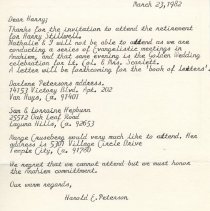 March 23, 1982
Dear Harry;
Thanks for the invitation to attend the retirement
for Harry Stillwell.
Nathalie & I will not be able to attend as we are
conducting a series of Evangelistic meetings in
Anaheim, and that same evening is the Golden Wedding
celebration for Lt. Col. & Mrs. Scarlett.
A letter will be forthcoming for the 'book of letters'.
Darlene Petersons address.
14153 Victory Blvd. Apt. 202
Van Nuys, Ca. 91401
Sam & Lorraine Hepburn
25572 Oak Leaf Road
Laguna Hills, Ca. 92653
Marge Cruseberg would very much like to attend. Her
address is 5301 Village Circle Drive
Temple City, Ca. 91780
We regret that we cannot attend but we must honor
the Anaheim commitment.
Our warm regards,
Harold E. Peterson